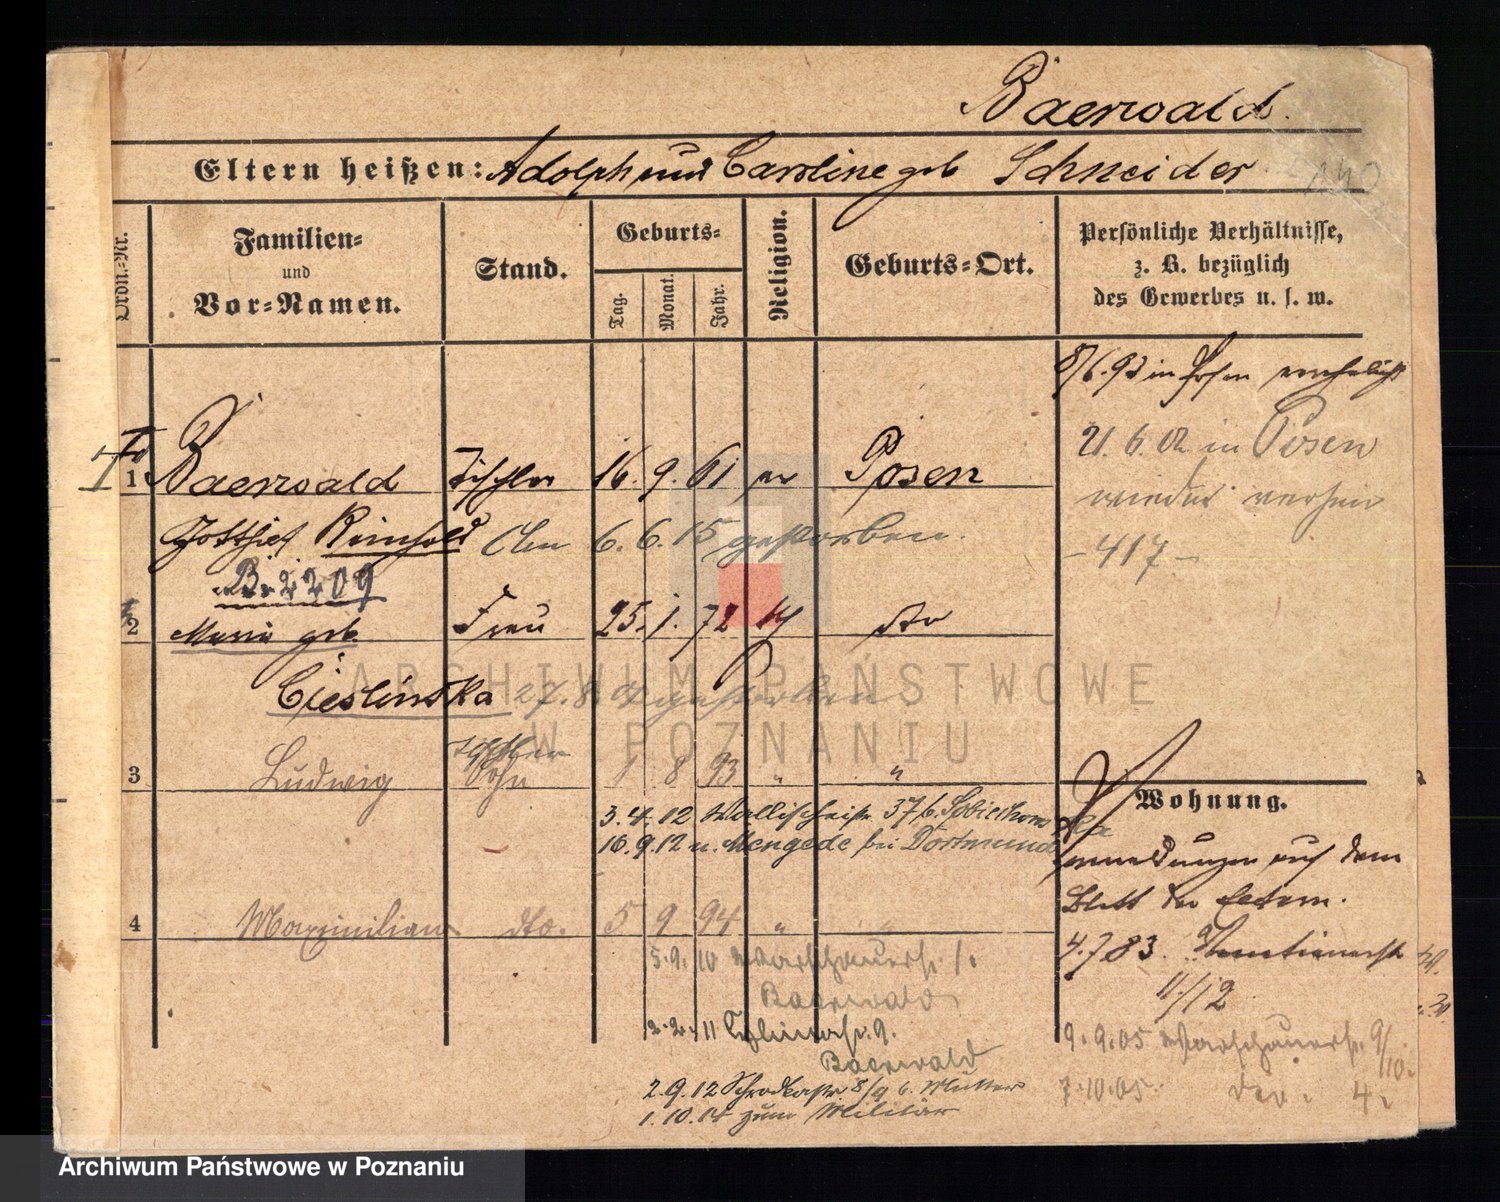 Baerwald.
Eltern heißen: Adolph und Caroline geb Schneider
140
Ordn.-Nr.
Familien-
und
Vor-Namen.
Stand.
Geburts-
Tag.
Monat.
Jahr.
Religion.
Geburts-Ort.
Persönliche Verhältnisse,
z. B. bezüglich
des Gewerbes u. s. w.
8/6.92 in Posen verehelicht
21.6.02 in Posen
wieder
- 417 -
1 Baerwald Tischler 16. 9. 61 ev Posen
Gotthilf Reinhold 6. 6. 15 gestorben.
B. 2209
2 Maria geb. Frau 25. 1. 72 dto
Cieslinska 27. 8. gestorben
3 Ludwig Tischler Sohn 1 8 93 " "
3. 4. 12 Wallischeistr 37 b.
16. 9. 12 n. Mengede bei Dortmund
Wohnung.
auf dem
Blatt der Eltern.
4 Maximilian dto. 5 9 94 " "
5. 9. 10 Warschauerstr. 1.
Baerwald
4. 7 83.
11/12
2. 2. 11 9.
Baerwald
9. 9. 05 Warschauerstr. 9/10.
2. 9. 12 8/9 b. Mutter
7. 10. 05. 4.
1. 10. 14 zum Militär
ARCHIWUM PAŃSTWOWE
W POZNANIU
Archiwum Państwowe w Poznaniu